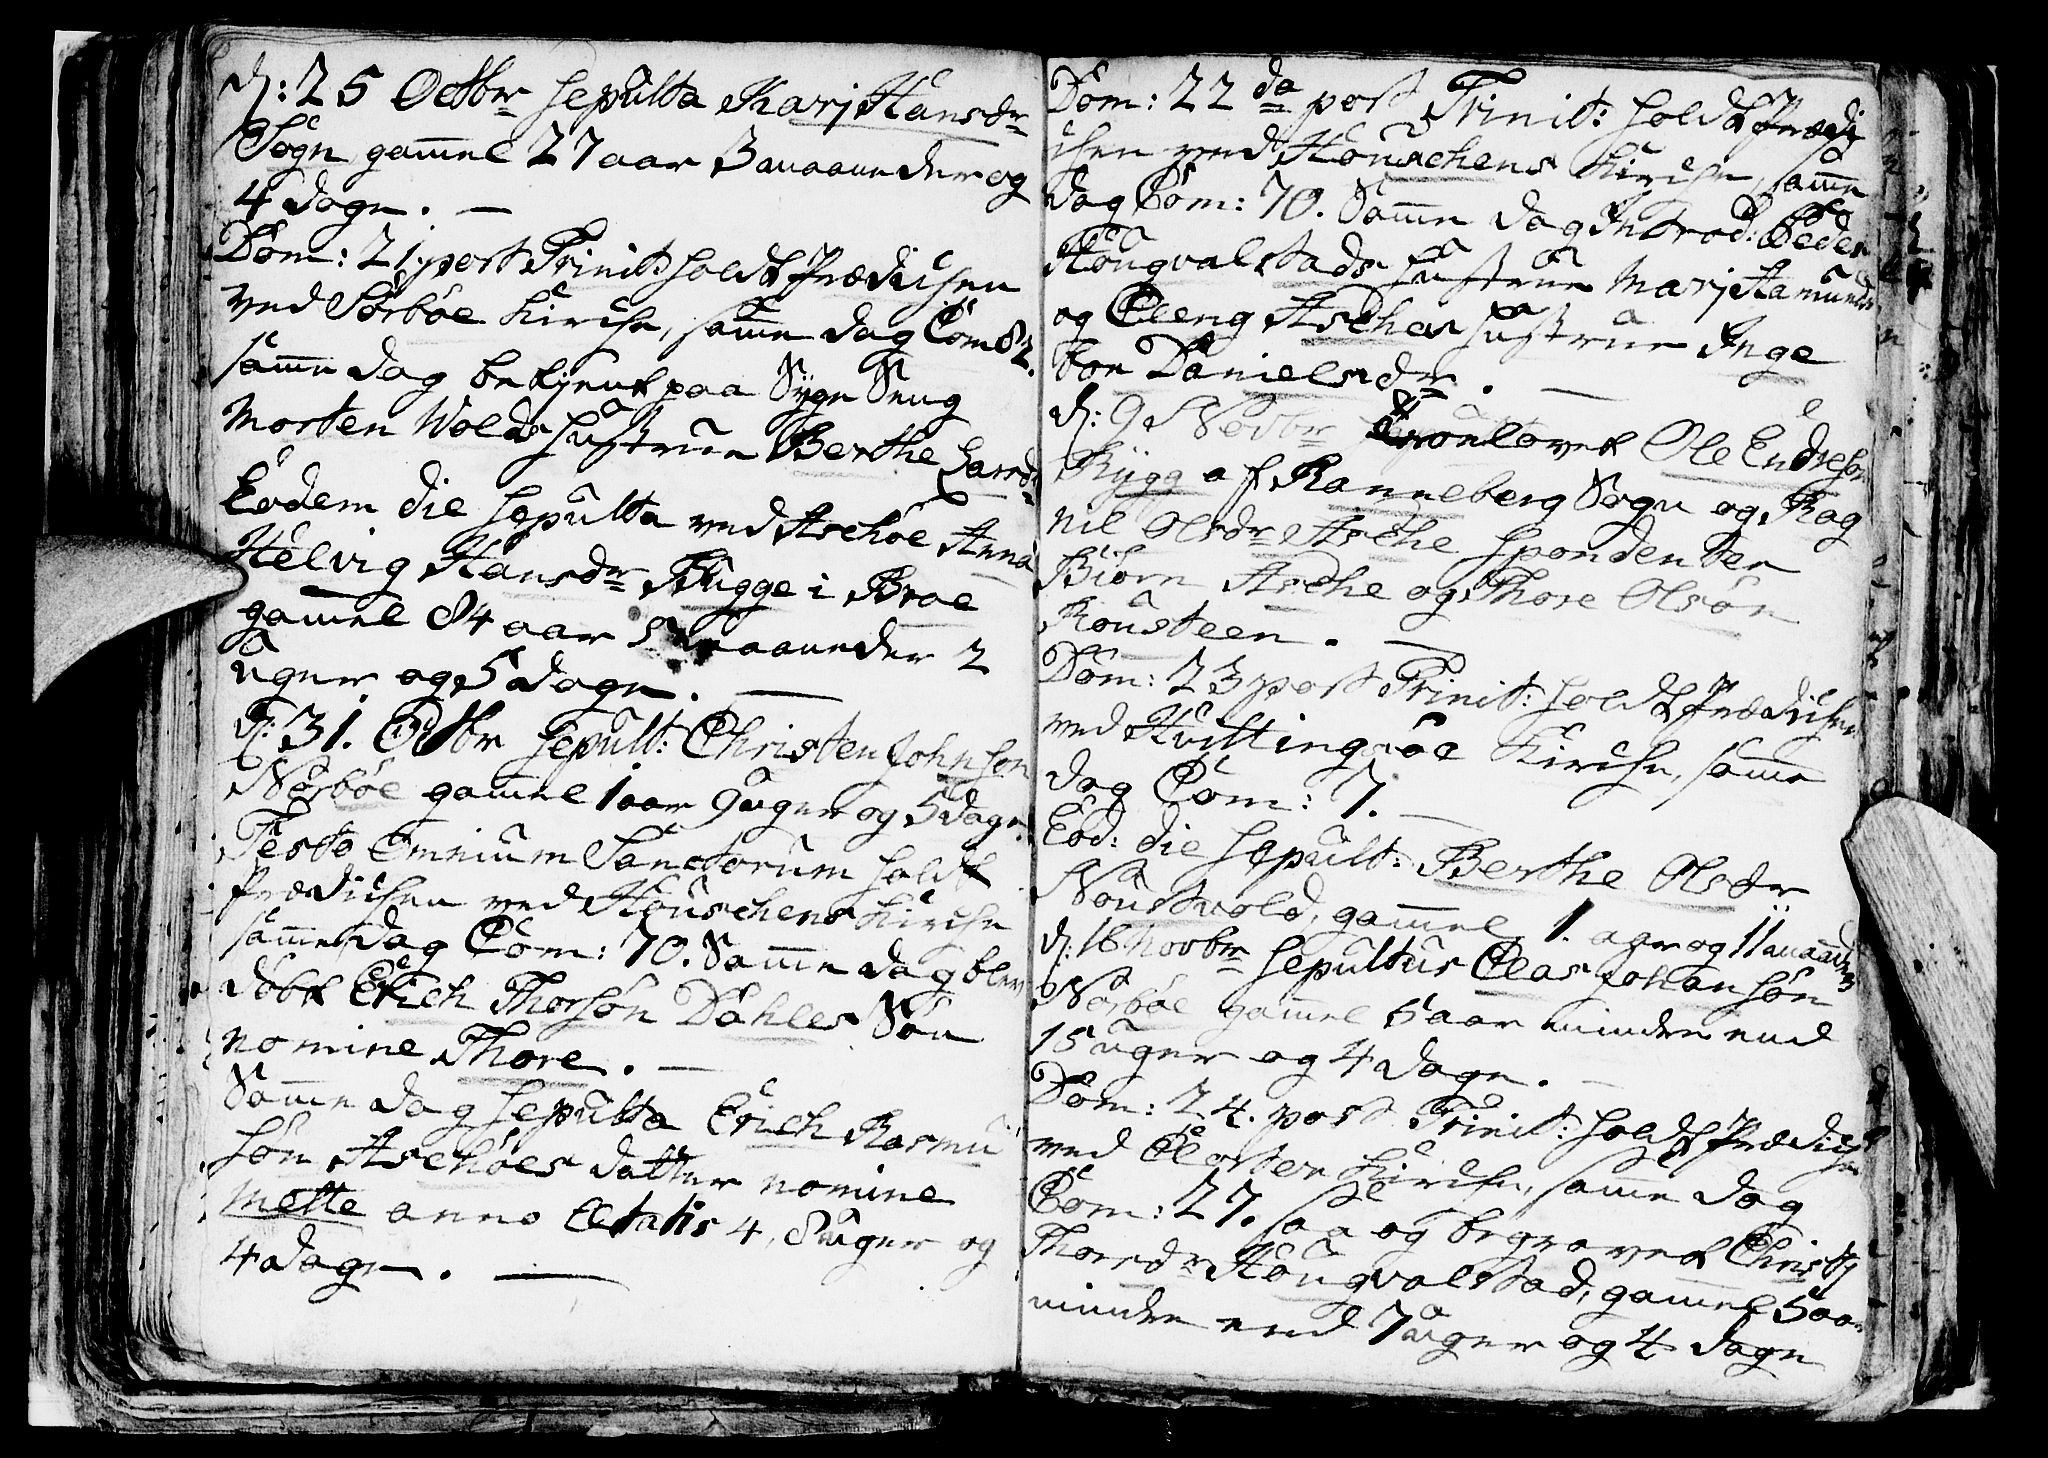 d: 25 Octbr sepulta Karj Hansdr
Sogn gammel 27 aar 3 maaneder og
4 dage. —
Dom: 21 post Trinit: holdt Prædichen
ved Sørbøe Kirche, samme dag Com: 82.
samme dag betjent paa Syge Seng
Morten Wolds hustrue Berthe Larsdr
Eodem die sepulta ved Aschøe Anna
Helvig Hansdr Bugge i Broe
gammel 84 aar 5 maaneder 2
uger og 5 dage. —
d: 31. Octbr sepult: Christen Johnson
Nørbøe gammel 1 aar 9 uger og 5 dage.
Festo Omnium Sanctorum holdt
Prædichen ved Houschens Kirche
samme dag Com: 70. Samme dag blev
døbt Erich Thorsøn Dahles Søn
nomine Thore. —
Samme dag sepulta Erich Rasmu
søn Aschøes datter nomine
Mette anno Ætatis 4, 8 uger og
4 dage. —
Dom: 22da post Trinit: holdt Prædi
chen ved Houschens Kirche, samme
dag Com: 70. Samme dag Introd: Peder
Hougvalstads hustrue Marj Aamunds
og Eleng Asches hustrue Inge
bor Danielsdr. —
d: 9 Novbr troelovet Ole Endresøn
Rygg af Ranneberg Sogn og Rag
nil Olsdr Asche sponderter
Biørn Asche og Thore Olsøn
Rousteen. —
Dom: 23 post Trinit: holdt Prædichen
ved Hvittingsøe Kirche, samme
dag Com: 7. —
Eod: die sepult: Berthe Olsdr
Noustvold, gammel 1. aar og 11 maander
d: 16 Novbr sepultus Clas Johansøn
Nørbøe gammel 5 aar minder end
15 uger og 4 dage. —
Dom: 24. post Trinit: holdt Prædiche
ved Closter Kirche, samme dag
Com: 27. saa og begravet Christj
Thorsdr Hougvalstad, gammel 5 aar
minder end 7 uger og 4 dage